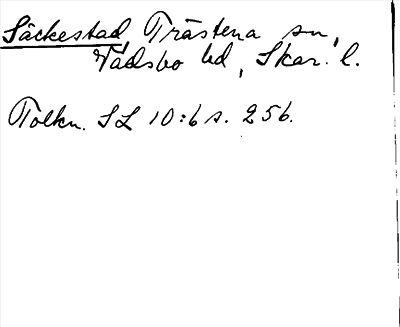 Säckestad, Trästena sn,
Vadsbo hd, Skar. l.
Tolkn. SL 10:6 s. 256.